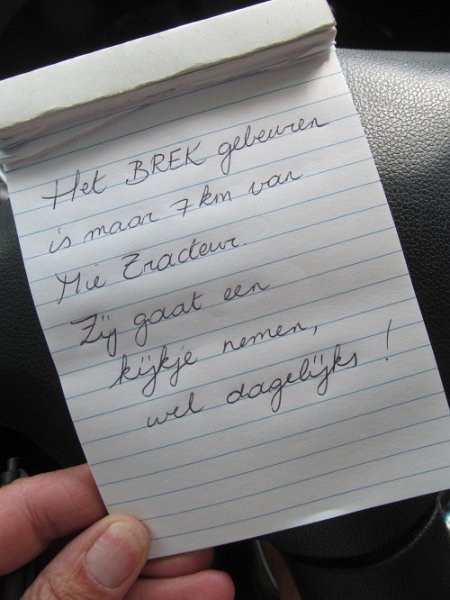 Het BREK gebeuren
is maar 7 km van
Mie Tracteur.
Zij gaat een
kijkje nemen,
wel dagelijks !